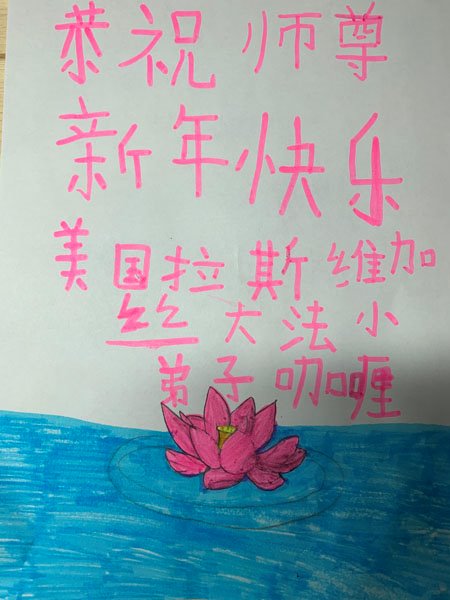 恭祝师尊
新年快乐
美国拉斯维加
丝大法小
弟子咖喱